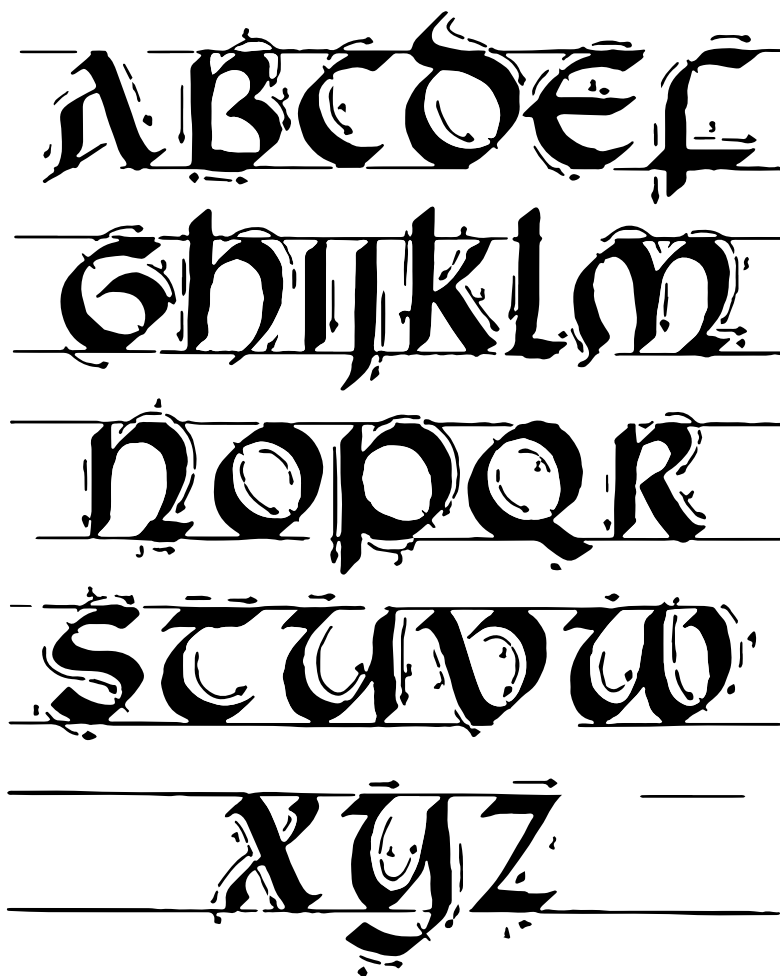 ABCDEF
GHIJKLM
NOPQR
STUVW
XYZ